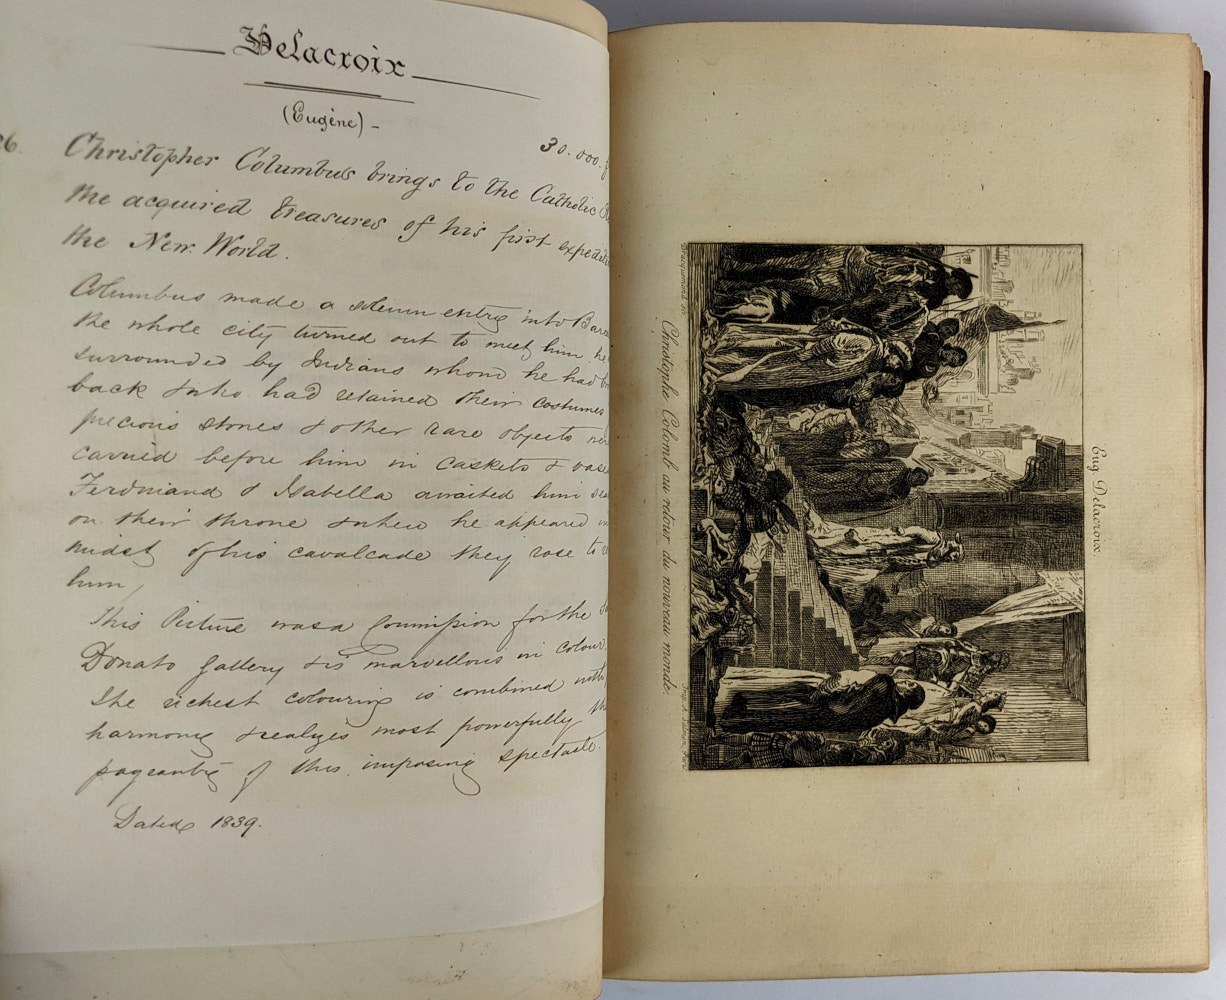 Delacroix
(Eugène) -
26. 30.000 f
Christopher Columbus brings to the Catholic
the acquired treasures of his first expedi
the New World.
Columbus made a solemn entry into Bar
the whole city turned out to meet him he
surrounded by Indians whom he had b
back & who had retained their costumes
precious stones & other rare objects
carried before him in caskets & vase
Ferdinand & Isabella awaited him sea
on their throne & when he appeared in
midst of his cavalcade they rose to
him
This Picture was a Commission for the
Donato Gallery & is marvellous in colour
The richest colouring is combined with
harmony & realizes most powerfully th
pageantry of this imposing spectacle.
Dated 1839.
Eug. Delacroix
Christophe Colomb au retour du nouveau monde.